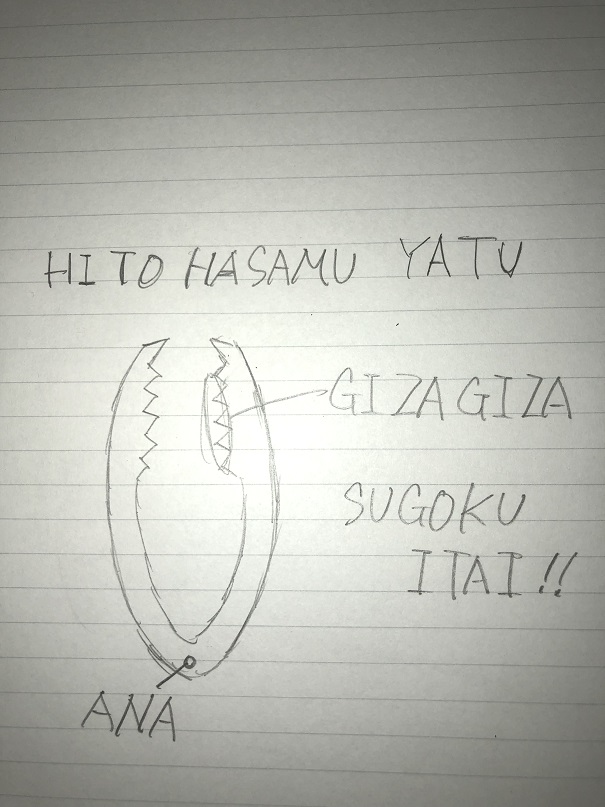 HITO HASAMU YATU
GIZAGIZA
SUGOKU
ITAI!!
ANA